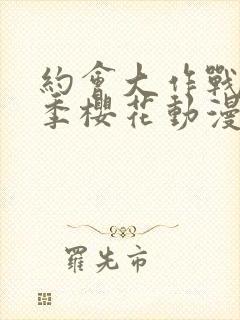 約會大作戰
季櫻花動漫
羅先市